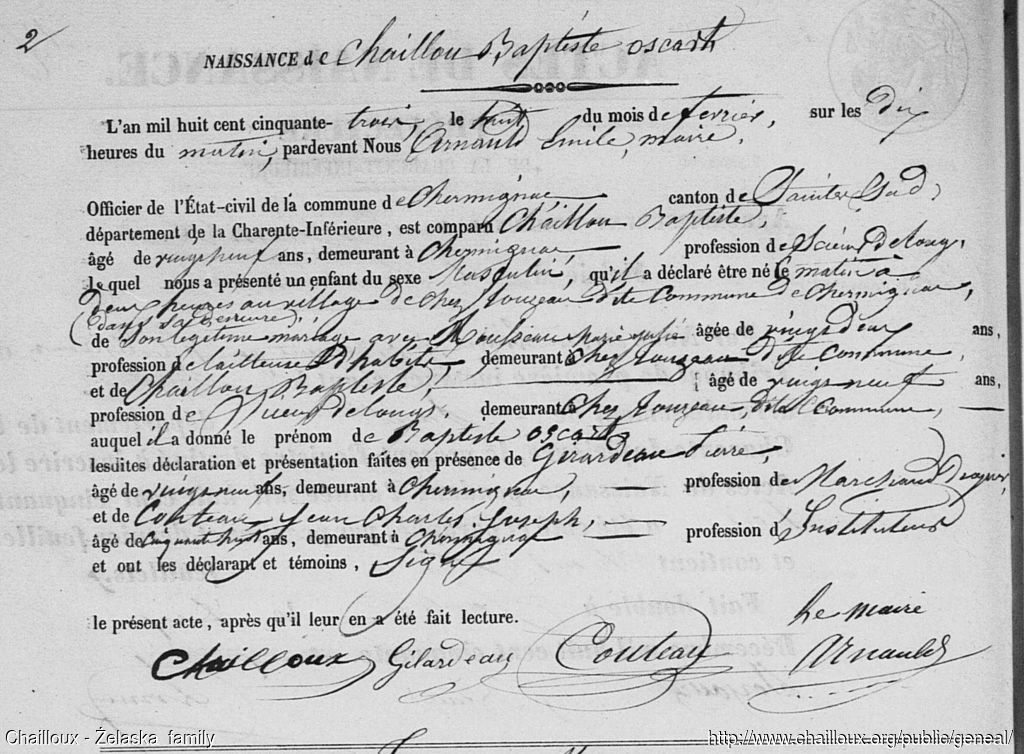 2
NAISSANCE de Chaillou Baptiste oscart
L'an mil huit cent cinquante- trois, le huit du mois de fevrier, sur les dix
heures du matin, pardevant Nous Arnauld Emile, maire,
Officier de l'État-civil de la commune de Chermignac canton de Saintes Sud,
département de la Charente-Inférieure, est comparu Chaillou Baptiste,
âgé de vingt neuf ans, demeurant à Chermignac profession de Scieur De long,
le quel nous a présenté un enfant du sexe Masculin, qu'il a déclaré être né le matin à
deux heures au village de chez Touzeau dite Commune de Chermignac,
(dans sa Demeure),
de son legitime mariage avec Rousseau marie julie âgée de vingt deux ans,
profession de tailleuse D'habits, demeurant à chez Touzeau Dite Commune,
et de Chaillou Baptiste âgé de vingt neuf ans,
profession de Scieur de longs demeurant à chez Touzeau dite Commune,
auquel il a donné le prénom de Baptiste oscart
lesdites déclaration et présentation faites en présence de Girardeau Pierre,
âgé de vingt neuf ans, demeurant à Chermignac, profession de Marchand
et de Couteau Jean Charles Joseph, profession d' Instituteur
âgé de cinquante huit ans, demeurant à Chermignac
et ont les déclarant et témoins, Signé
le présent acte, après qu'il leur en a été fait lecture.
Le maire
Chailloux Girardeau Couteau Arnauld
Chailloux - Żelaska family http://www.chailloux.org/public/geneal/